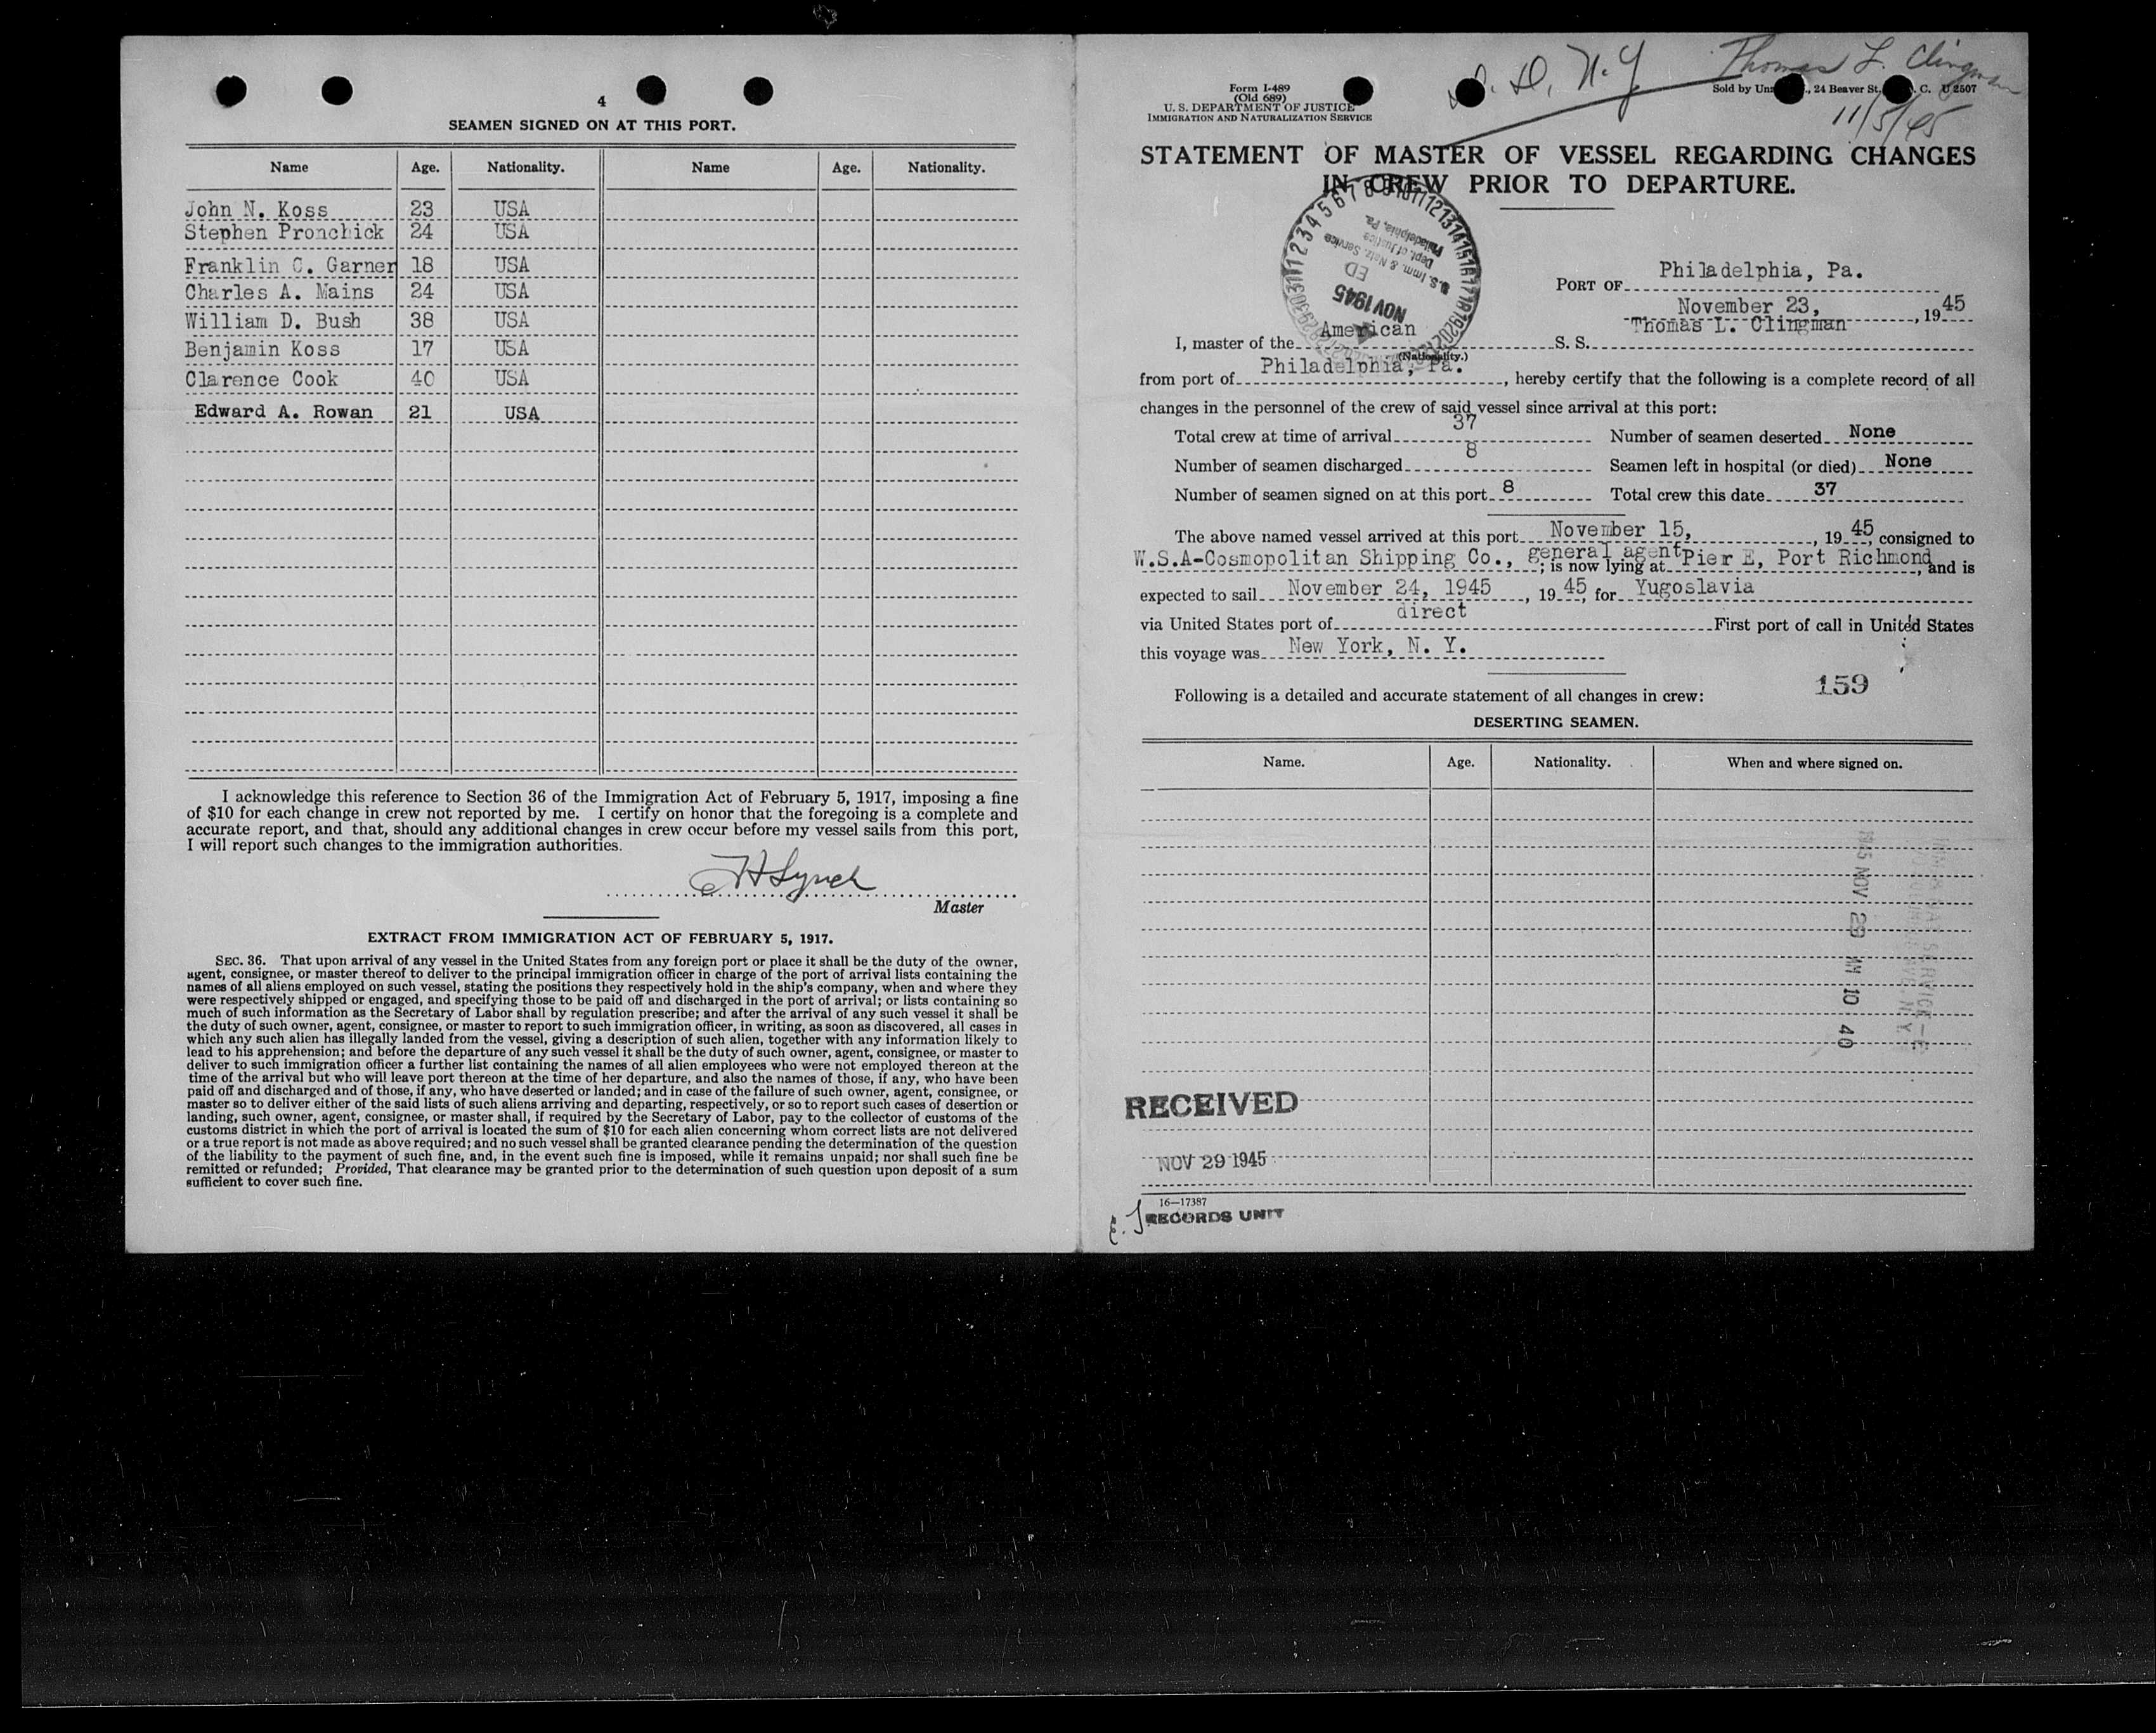 4
SEAMEN SIGNED ON AT THIS PORT.
Name Age. Nationality. Name Age. Nationality.
John N. Koss 23 USA
Stephen Pronchick 24 USA
Franklin C. Garner 18 USA
Charles A. Mains 24 USA
William D. Bush 38 USA
Benjamin Koss 17 USA
Clarence Cook 40 USA
Edward A. Rowan 21 USA
I acknowledge this reference to Section 36 of the Immigration Act of February 5, 1917, imposing a fine
of $10 for each change in crew not reported by me. I certify on honor that the foregoing is a complete and
accurate report, and that, should any additional changes in crew occur before my vessel sails from this port,
I will report such changes to the immigration authorities.
Lynch
Master
EXTRACT FROM IMMIGRATION ACT OF FEBRUARY 5, 1917.
SEC. 36. That upon arrival of any vessel in the United States from any foreign port or place it shall be the duty of the owner,
agent, consignee, or master thereof to deliver to the principal immigration officer in charge of the port of arrival lists containing the
names of all aliens employed on such vessel, stating the positions they respectively hold in the ship's company, when and where they
were respectively shipped or engaged, and specifying those to be paid off and discharged in the port of arrival; or lists containing so
much of such information as the Secretary of Labor shall by regulation prescribe; and after the arrival of any such vessel it shall be
the duty of such owner, agent, consignee, or master to report to such immigration officer, in writing, as soon as discovered, all cases in
which any such alien has illegally landed from the vessel, giving a description of such alien, together with any information likely to
lead to his apprehension; and before the departure of any such vessel it shall be the duty of such owner, agent, consignee, or master to
deliver to such immigration officer a further list containing the names of all alien employees who were not employed thereon at the
time of the arrival but who will leave port thereon at the time of her departure, and also the names of those, if any, who have been
paid off and discharged and of those, if any, who have deserted or landed; and in case of the failure of such owner, agent, consignee, or
master so to deliver either of the said lists of such aliens arriving and departing, respectively, or so to report such cases of desertion or
landing, such owner, agent, consignee, or master shall, if required by the Secretary of Labor, pay to the collector of customs of the
customs district in which the port of arrival is located the sum of $10 for each alien concerning whom correct lists are not delivered
or a true report is not made as above required; and no such vessel shall be granted clearance pending the determination of the question
of the liability to the payment of such fine, and, in the event such fine is imposed, while it remains unpaid; nor shall such fine be
remitted or refunded; Provided, That clearance may be granted prior to the determination of such question upon deposit of a sum
sufficient to cover such fine.
D, N.Y Thomas L. Clingman
11/5/45
Form I-489
(Old 689)
U. S. DEPARTMENT OF JUSTICE
IMMIGRATION AND NATURALIZATION SERVICE
Sold by , 24 Beaver St. C. U 2507
STATEMENT OF MASTER OF VESSEL REGARDING CHANGES
IN CREW PRIOR TO DEPARTURE.
U.S. Imm. & Natz. Service
Dept. of Justice
Philadelphia, Pa.
NOV 1945
PORT OF Philadelphia, Pa.
November 23, , 1945
I, master of the American S. S. Thomas L. Clingman
(Nationality.)
from port of Philadelphia, Pa. , hereby certify that the following is a complete record of all
changes in the personnel of the crew of said vessel since arrival at this port:
Total crew at time of arrival 37 Number of seamen deserted None
Number of seamen discharged 8 Seamen left in hospital (or died) None
Number of seamen signed on at this port 8 Total crew this date 37
The above named vessel arrived at this port November 15, , 1945, consigned to
W.S.A-Cosmopolitan Shipping Co., general agent; is now lying at Pier E, Port Richmond, and is
expected to sail November 24, 1945 , 1945, for Yugoslavia
via United States port of direct First port of call in United States
this voyage was New York, N. Y.
159
Following is a detailed and accurate statement of all changes in crew:
DESERTING SEAMEN.
Name. Age. Nationality. When and where signed on.
1945 NOV 29 AM 10 40
RECEIVED
NOV 29 1945
16—17387
RECORDS UNIT